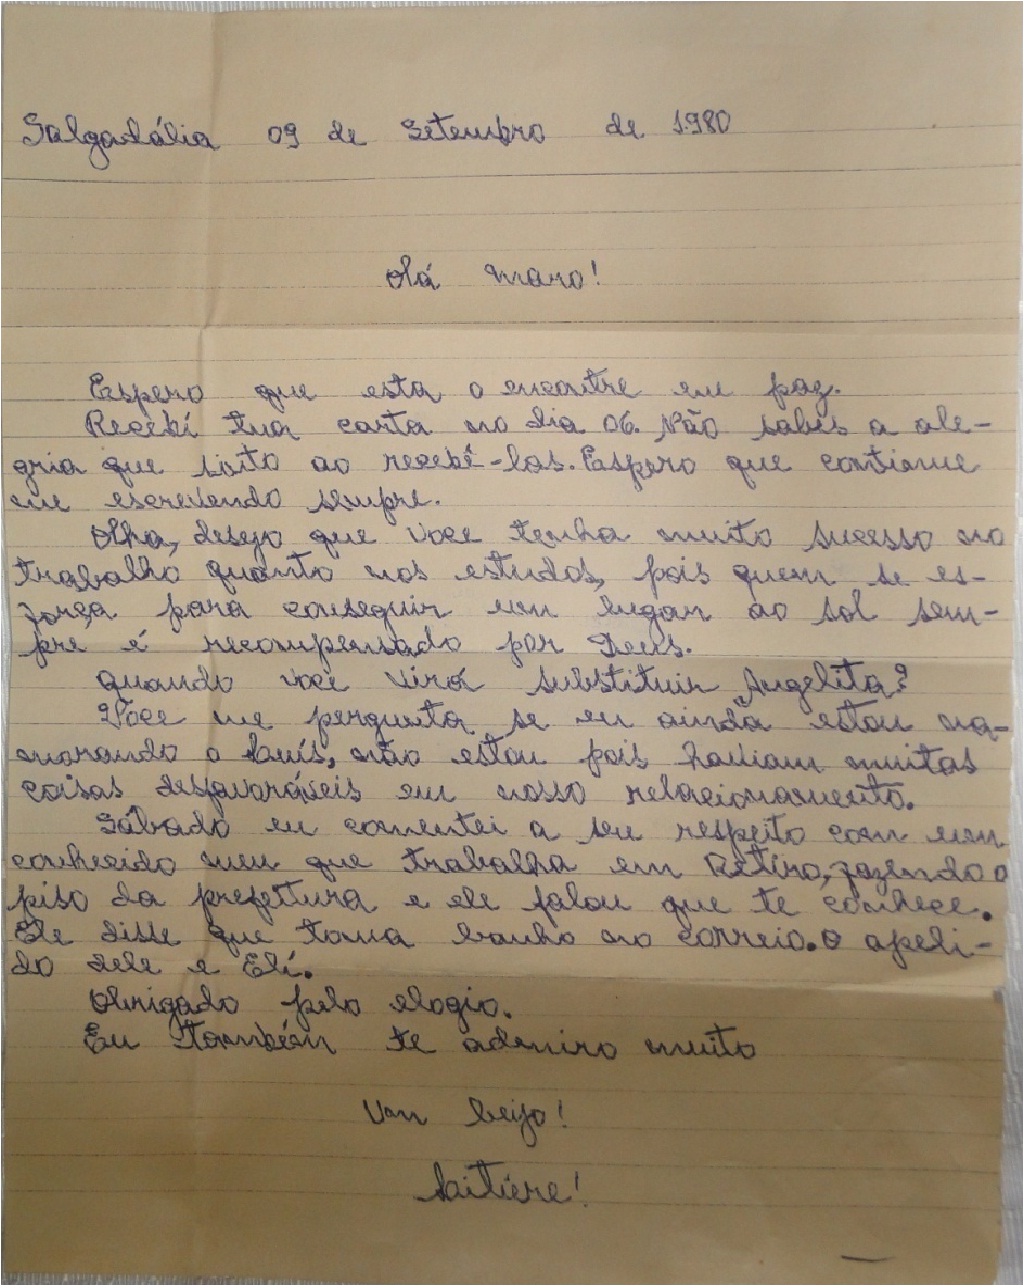 Salgadália 09 de Setembro de 1.980
Olá mano!
Espero que esta o encontre em paz.
Recebí tua carta no dia 06. Não sabes a ale-
gria que sinto ao recebê-las. Espero que continue
me escrevendo sempre.
Olha, desejo que voce tenha muito sucesso no
trabalho quanto nos estudos, pois quem se es-
força para conseguir um lugar ao sol sem-
pre é recompensado por Deus.
Quando você virá substituir Angelita?
Voce me pergunta se eu ainda estou na-
morando o Luís, não estou pois haviam muitas
coisas desfavoráveis em nosso relacionamento.
Sábado eu comentei a seu respeito com um
conhecido meu que trabalha em Retiro, fazendo o
piso da prefeitura e ele falou que te conhece.
Ele disse que toma banho no correio. O apeli-
do dele e Elí.
Obrigado pelo elogio.
Eu também te admiro muito
Um beijo!